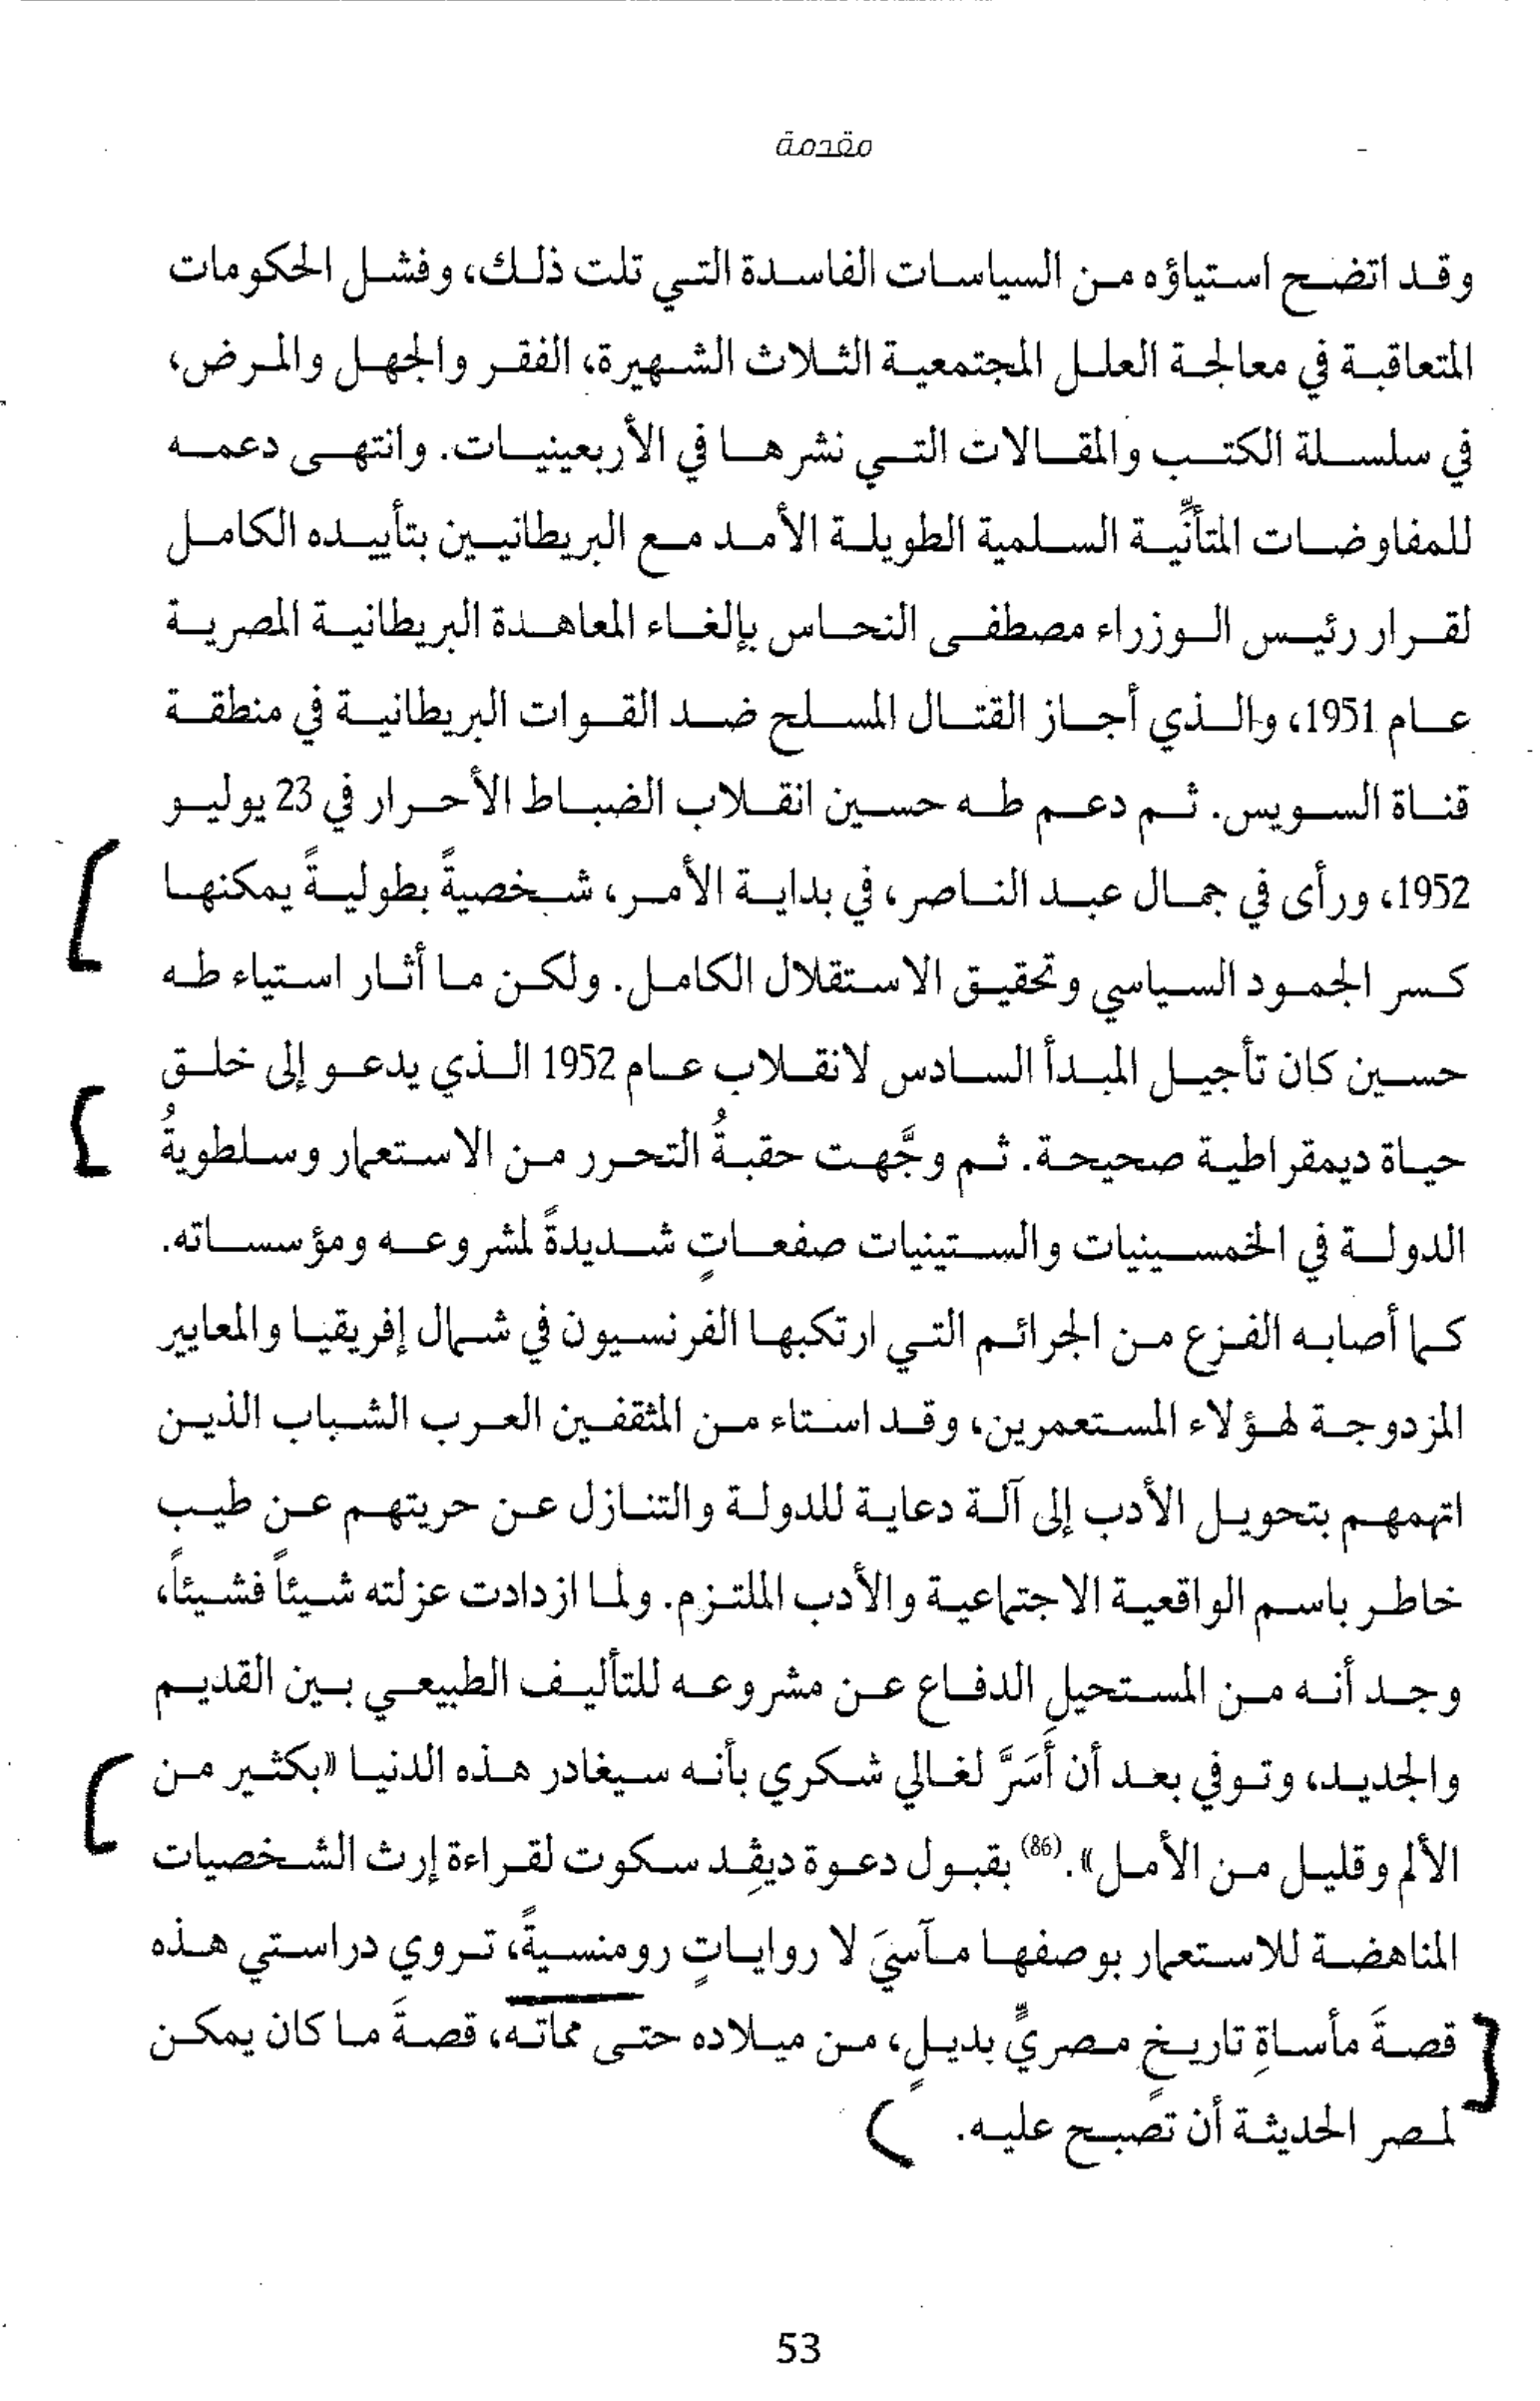 مقدمة
وقد اتضح استياؤه من السياسات الفاسدة التي تلت ذلك، وفشل الحكومات
المتعاقبة في معالجة العلل المجتمعية الثلاث الشهيرة، الفقر والجهل والمرض،
في سلسلة الكتب والمقالات التي نشرها في الأربعينيات. وانتهى دعمه
للمفاوضات المتأنِّية السلمية الطويلة الأمد مع البريطانيين بتأييده الكامل
لقرار رئيس الوزراء مصطفى النحاس بإلغاء المعاهدة البريطانية المصرية
عام 1951، والذي أجاز القتال المسلح ضد القوات البريطانية في منطقة
قناة السويس. ثم دعم طه حسين انقلاب الضباط الأحرار في 23 يوليو
1952، ورأى في جمال عبد الناصر، في بداية الأمر، شخصيةً بطوليةً يمكنها
كسر الجمود السياسي وتحقيق الاستقلال الكامل. ولكن ما أثار استياء طه
حسين كان تأجيل المبدأ السادس لانقلاب عام 1952 الذي يدعو إلى خلق
حياة ديمقراطية صحيحة. ثم وجَّهت حقبةُ التحرر من الاستعمار وسلطويةُ
الدولة في الخمسينيات والستينيات صفعاتٍ شديدةً لمشروعه ومؤسساته.
كما أصابه الفزع من الجرائم التي ارتكبها الفرنسيون في شمال إفريقيا والمعايير
المزدوجة لهؤلاء المستعمرين، وقد استاء من المثقفين العرب الشباب الذين
اتهمهم بتحويل الأدب إلى آلة دعاية للدولة والتنازل عن حريتهم عن طيب
خاطر باسم الواقعية الاجتماعية والأدب الملتزم. ولما ازدادت عزلته شيئاً فشيئاً،
وجد أنه من المستحيل الدفاع عن مشروعه للتأليف الطبيعي بين القديم
والجديد، وتوفي بعد أن أَسَرَّ لغالي شكري بأنه سيغادر هذه الدنيا «بكثير من
الألم وقليل من الأمل».(86) بقبول دعوة ديڤِد سكوت لقراءة إرث الشخصيات
المناهضة للاستعمار بوصفها مآسيَ لا رواياتٍ رومنسيةً، تروي دراستي هذه
قصةَ مأساةِ تاريخٍ مصريٍّ بديلٍ، من ميلاده حتى مماته، قصةَ ما كان يمكن
لمصر الحديثة أن تصبح عليه.
53